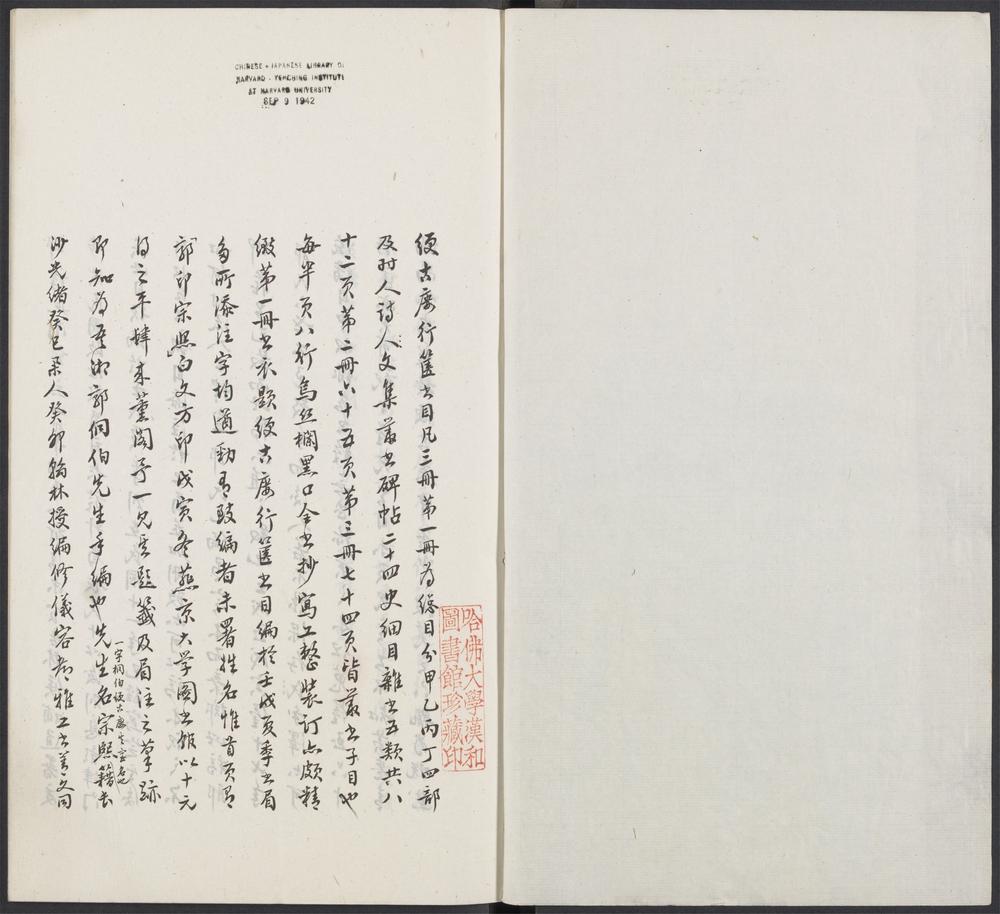 CHINESE - JAPANESE LIBRARY OF
HARVARD - YENCHING INSTITUTE
AT HARVARD UNIVERSITY
SEP 9 1942
哈佛大學漢和
圖書館珍藏印
復古廔行篋書目凡三冊第一冊為總目分甲乙丙丁四部
及時人詩人文集叢書碑帖二十四史細目雜書五類共八
十二頁第二冊六十五頁第三冊七十四頁皆叢書子目也
每半頁八行烏絲欄黑口全書抄寫工整裝訂亦頗精
緻第一冊書衣題復古廔行篋書目編於壬戌夏季書眉
多所添注字均遒勁有致編者未署姓名惟首頁有
「郭印宗熙」白文方印戊寅冬燕京大学圖書館以十元
得之平肆來薰閣予一見其題籤及眉注之筆跡
即知為吾湘郭侗伯先生手編也先生名宗熙籍長
一字桐伯復古廔其室名也
沙光緒癸巳舉人癸卯翰林授編修儀容都雅工書善文同